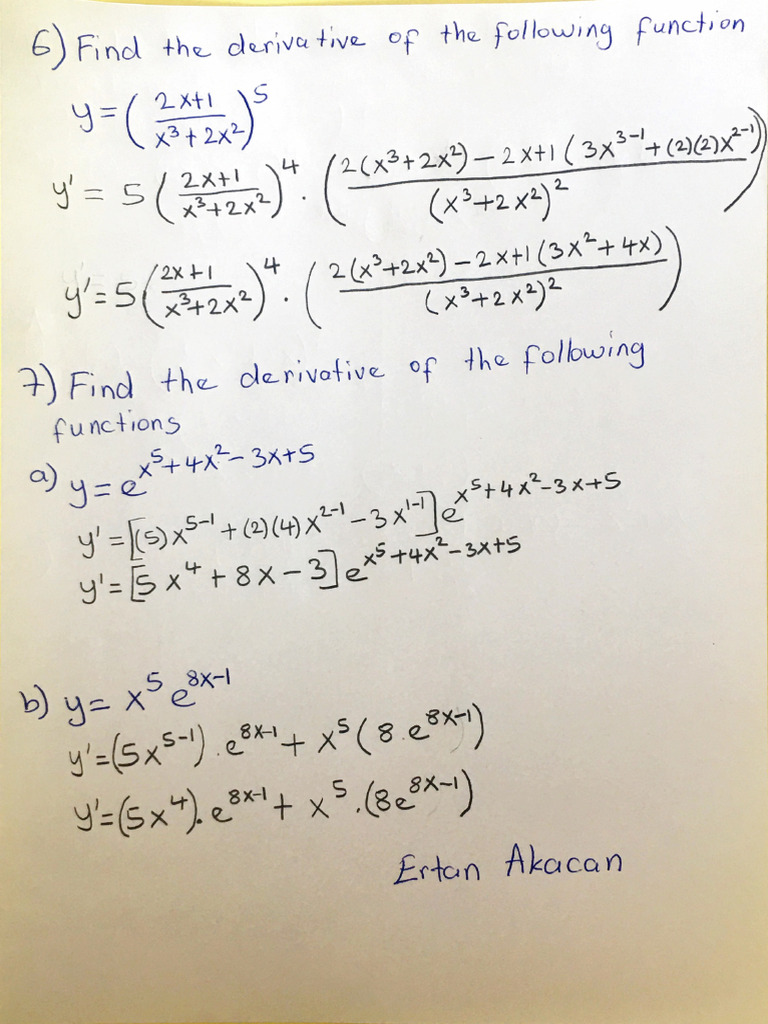 6) Find the derivative of the following function
y = ( (2x+1) / (x³ + 2x²) )⁵
y' = 5 ( (2x+1) / (x³+2x²) )⁴ · ( (2(x³+2x²) – 2x+1 (3x³⁻¹ + (2)(2)x²⁻¹)) / (x³+2x²)² )
y' = 5 ( (2x+1) / (x³+2x²) )⁴ · ( (2(x³+2x²) – 2x+1 (3x² + 4x)) / (x³+2x²)² )
7) Find the derivative of the following
functions
a) y = e^(x⁵+4x²–3x+5)
y' = [(5)x⁵⁻¹ + (2)(4)x²⁻¹ – 3x¹⁻¹] e^(x⁵+4x²–3x+5)
y' = [5x⁴ + 8x – 3] e^(x⁵+4x²–3x+5)
b) y = x⁵ e^(8x–1)
y' = (5x⁵⁻¹) . e^(8x–1) + x⁵ (8 . e^(8x–1))
y' = (5x⁴) . e^(8x–1) + x⁵ . (8e^(8x–1))
Ertan Akacan